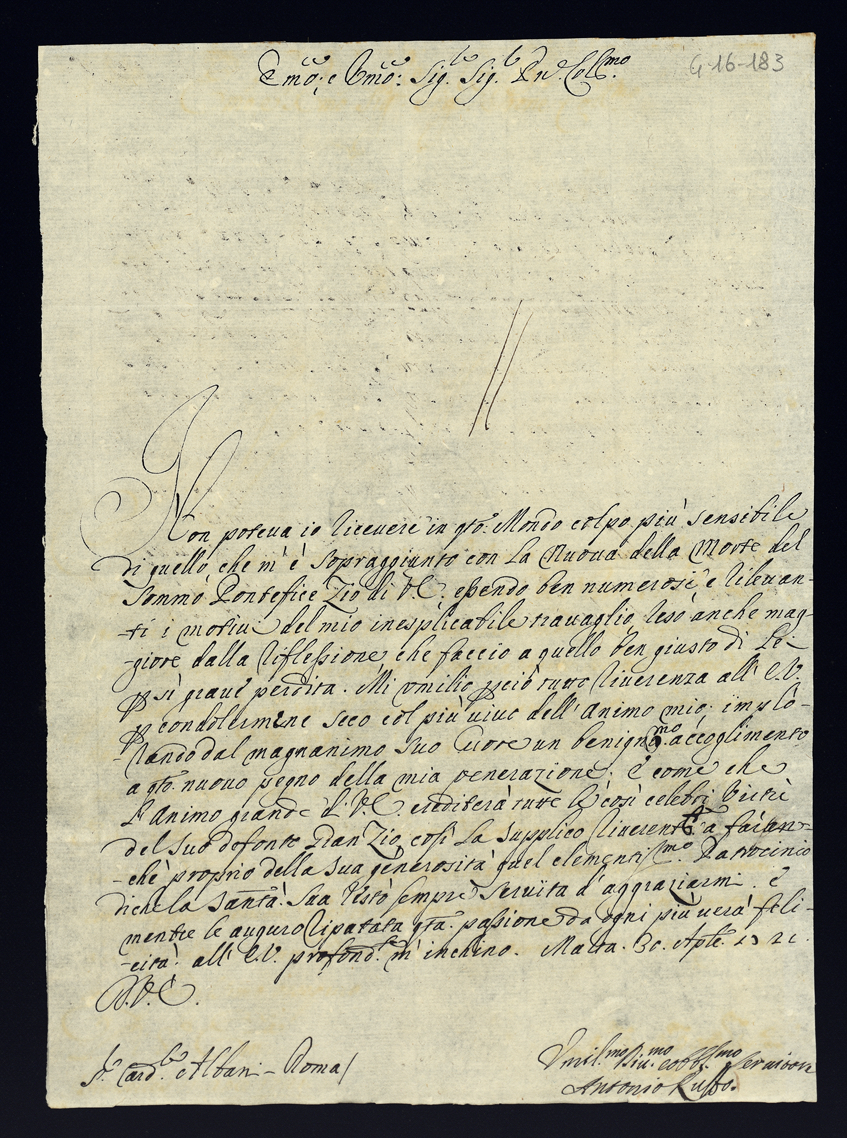 Emo: e Rmo: Sig.re Sig.r Pn̄e Col.mo
G-16-183
Non poteva io ricevere in q̄to Mondo colpo più sensibile
di quello che m'è sopraggiunto con la nuova della Morte del
Sommo Pontefice Zio di V.E. essendo ben numerosi, e rilevan-
-ti i motivi del mio inesplicabile travaglio reso anche mag-
-giore dalla riflessione che faccio a quello ben giusto di Lei
p sì grave perdita. Mi umilio p ciò tutto riverenza all'E.V.
p condolermene seco col più vivo dell'Animo mio; implo-
-rando dal magnanimo suo Cuore un benign.mo accoglimento
a q̄to nuovo pegno della mia venerazione; E come che
l'Animo grande di V.E. erediterà tutte le così celebri Virtù
del suo defonto Gran Zio, così la supplico a far an-
-che proprio della sua generosità quel clementiss.mo Patrocinio
di che la Santà Sua restò sempre servita d'aggraziarmi. E
mentre le auguro riparata q̄ta passione da ogni più vera feli-
-cità all'E.V. profond.te m'inchino. Malta 30. Aple. 1721.
D.V.E.
S.r Card.le Albani - Roma
Umil.mo Div.mo ed Obb.mo Servitore
Antonio Ruffo.